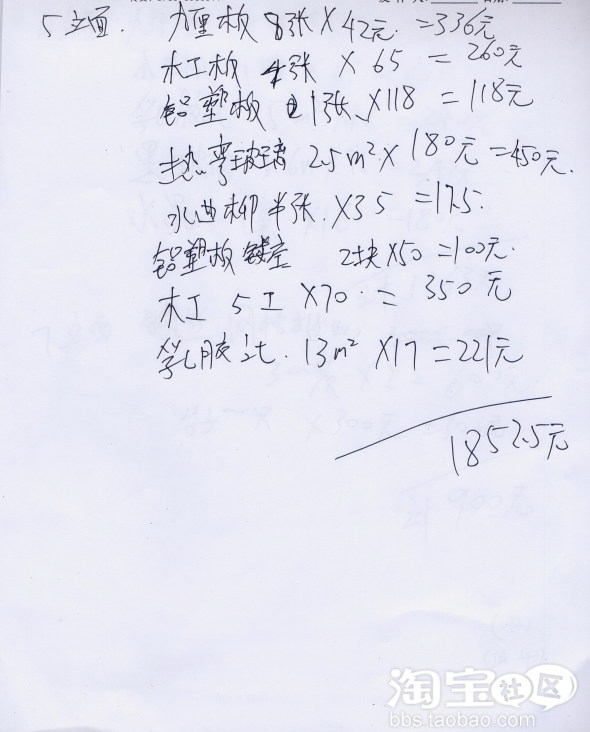 5 立面. 九厘板 8张 X 42元. =336元
木工板 4张 X 65 = 260元
铝塑板 1张 X118 =118元
热弯玻璃 2.5m² X 180元=450元.
水曲柳 半张. X35 =17.5.
铝塑板 镂空 2块X50=100元.
木工 5工 X70 = 350元
乳胶漆. 13m² X17=221元
1852.5元
淘宝社区
bbs.taobao.com